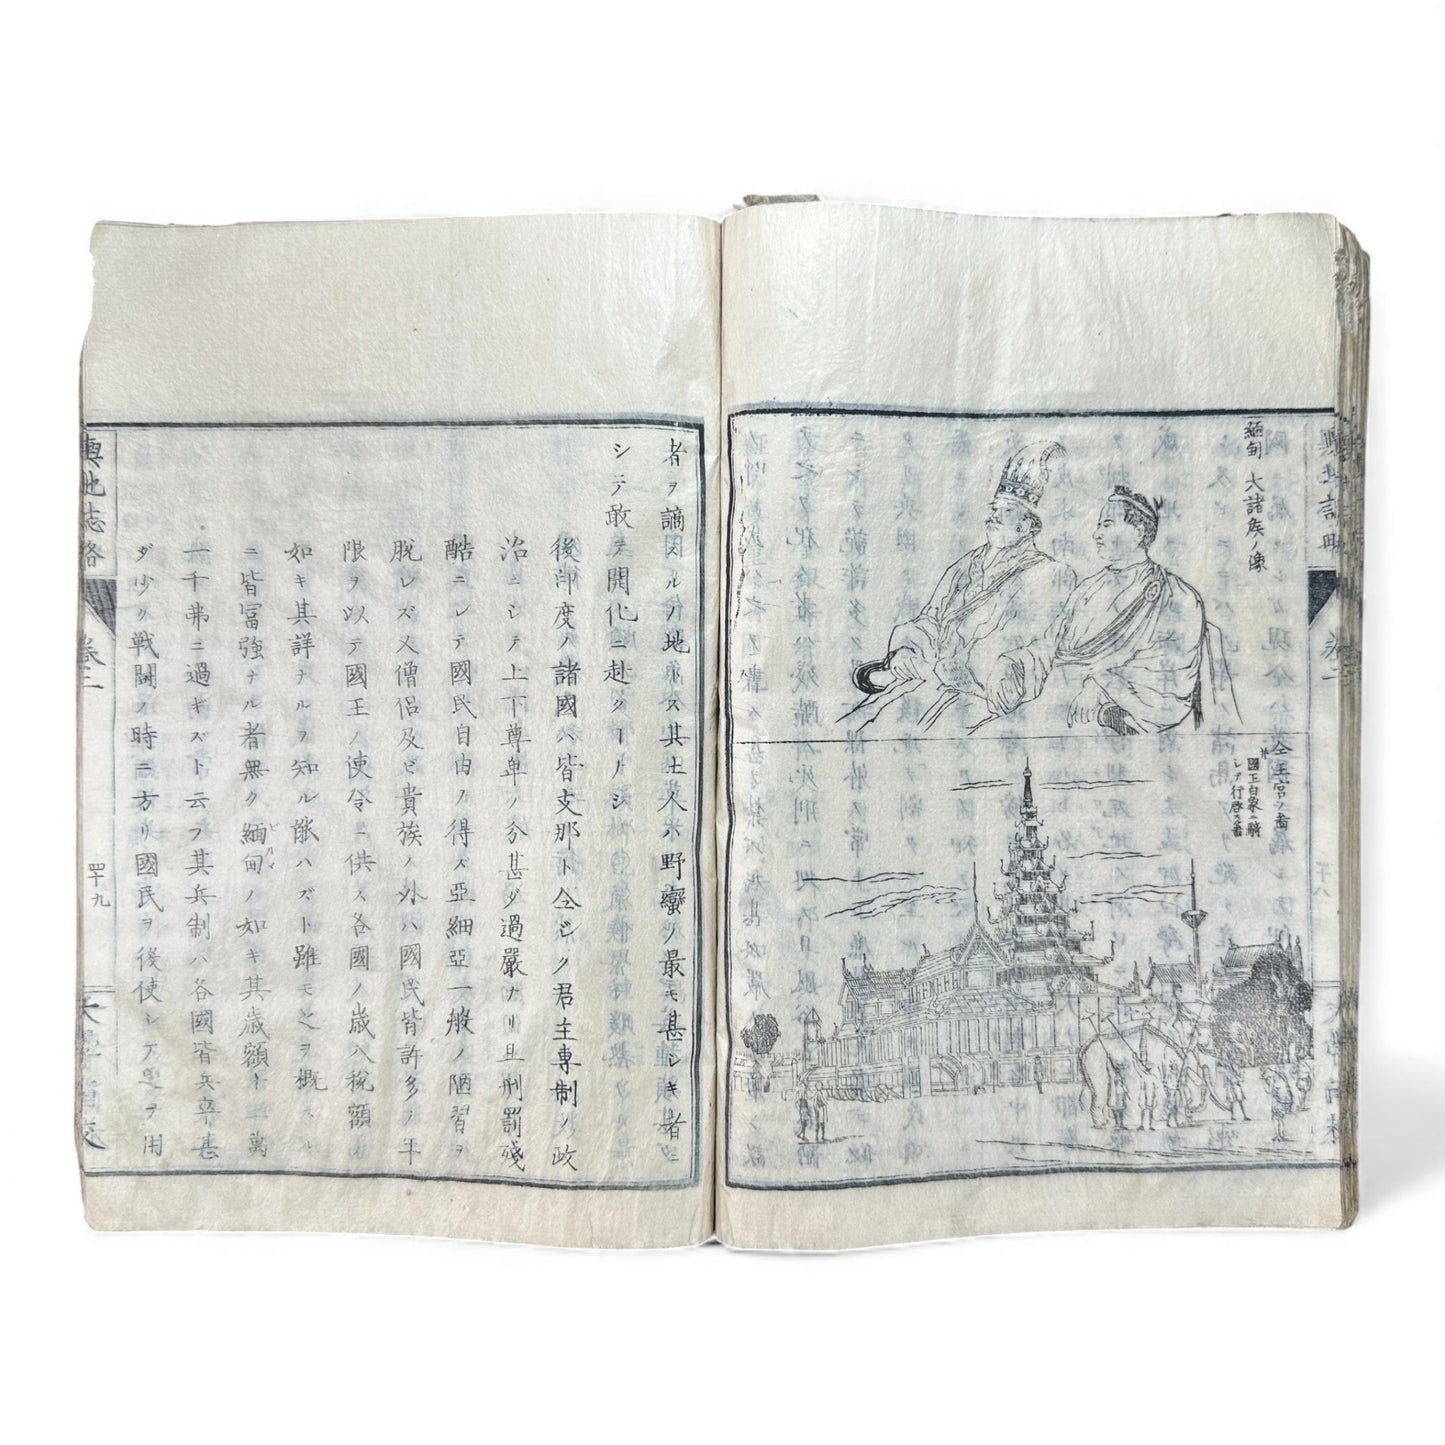 緬甸 大諸矦ノ像
仝 王宮ノ圖
并
國王白象ニ騎
シテ行啓スル圖
者ヲ謫スルノ地トス其土人ハ野蠻ノ最モ甚シキ者ニ
シテ敢テ開化ニ赴クコトナシ
後印度ノ諸國ハ皆支那ト仝シク君主專制ノ政
治ニシテ上下尊卑ノ分甚ダ過嚴ナリ且刑罰殘
酷ニシテ國民自由ヲ得ズ亞細亞一般ノ陋習ヲ
脱レズ又僧侶及ビ貴族ノ外ハ國民皆許多ノ年
限ヲ以テ國王ノ使令ニ供ス各國ノ歳入税額ノ
如キ其詳ナルヲ知ル能ハズト雖モ之ヲ概スル
ニ皆冨強ナル者無ク緬甸ノ如キ其歳額十萬
ビルマ
一千弗ニ過ギズト云フ其兵制ハ各國皆兵卒甚
ダ少ク戰鬪ノ時ニ方リ國民ヲ役使シテ之ヲ用
輿地誌略
卷二
四十九
大學南校